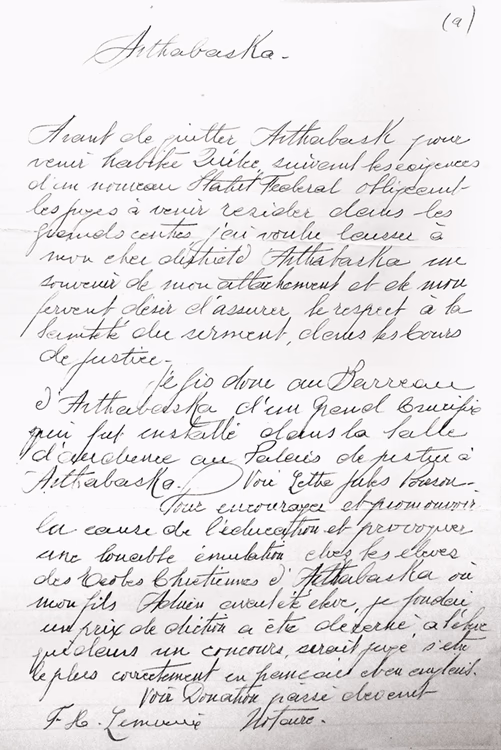 (a)
Arthabaska.
Avant de quitter Arthabask pour
venir habité Québec, suivant les exigences
d'un nouveau Statut Federal obligeant
les juges à venir resider dans les
grands centres, j'ai voulu laisser à
mon cher district d'Arthabaska un
souvenir de mon attachement et de mon
fervent désir d'assurer, le respect à la
Sainteté du serment, dans les Cours
de justice.
Je fis donc au Barreau
d'Arthabaska d'un Grand Crucifix
qui fut installé dans la Salle
d'audience au Palais de justice à
Arthabaska. Voir Lettre Jules
Pour encourager et promouvoir
la cause de l'éducation et provoquer
une louable émulation chez les élèves
des Ecoles Chrétiennes d'Arthabaska où
mon fils Adrien avait été élevé, je fondai
un prix de diction a être décerné, a l'élève
qui dans un concours, serait jugé s'être
le plus correctement en français et en anglais.
Voir Donation passé devant
F. H. Notaire.